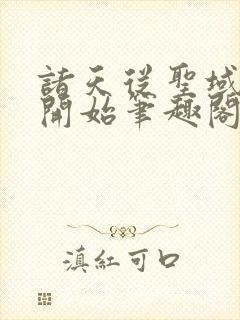 諸天從聖域
開始筆趣閣
滇紅可口